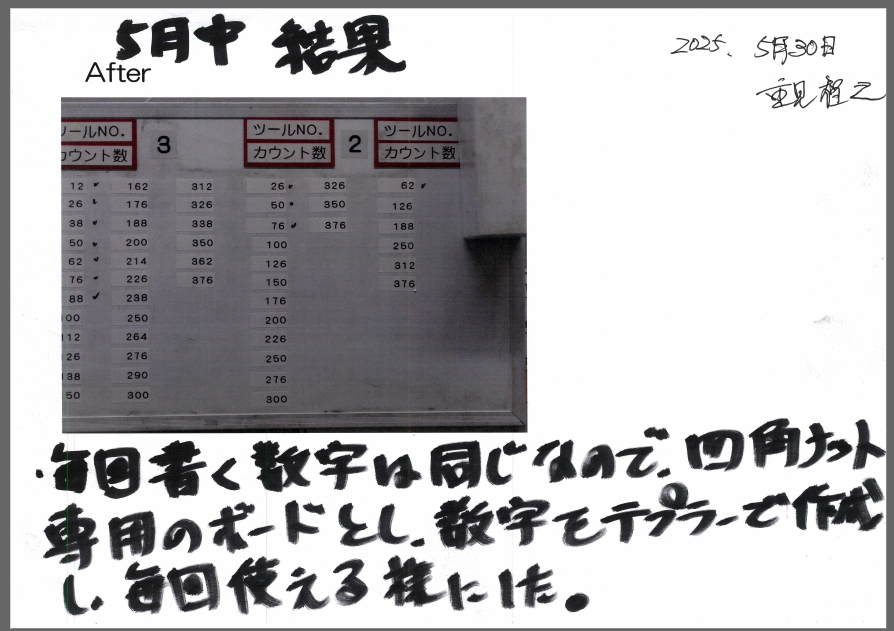 5月中 結果
2025. 5月30日
After
ツールNO. 3 ツールNO. 2 ツールNO.
カウント数 カウント数 カウント数
12 162 312 26 326 62
26 176 326 50 350 126
38 188 338 76 376 188
50 200 350 100 250
62 214 362 126 312
76 226 376 150 376
88 238 176
00 250 200
112 264 226
26 276 250
38 290 276
50 300 300
・毎回書く数字は同じなので、四角ナット
専用のボードとし、数字をテプラーで作成
し、毎回使える様にした。